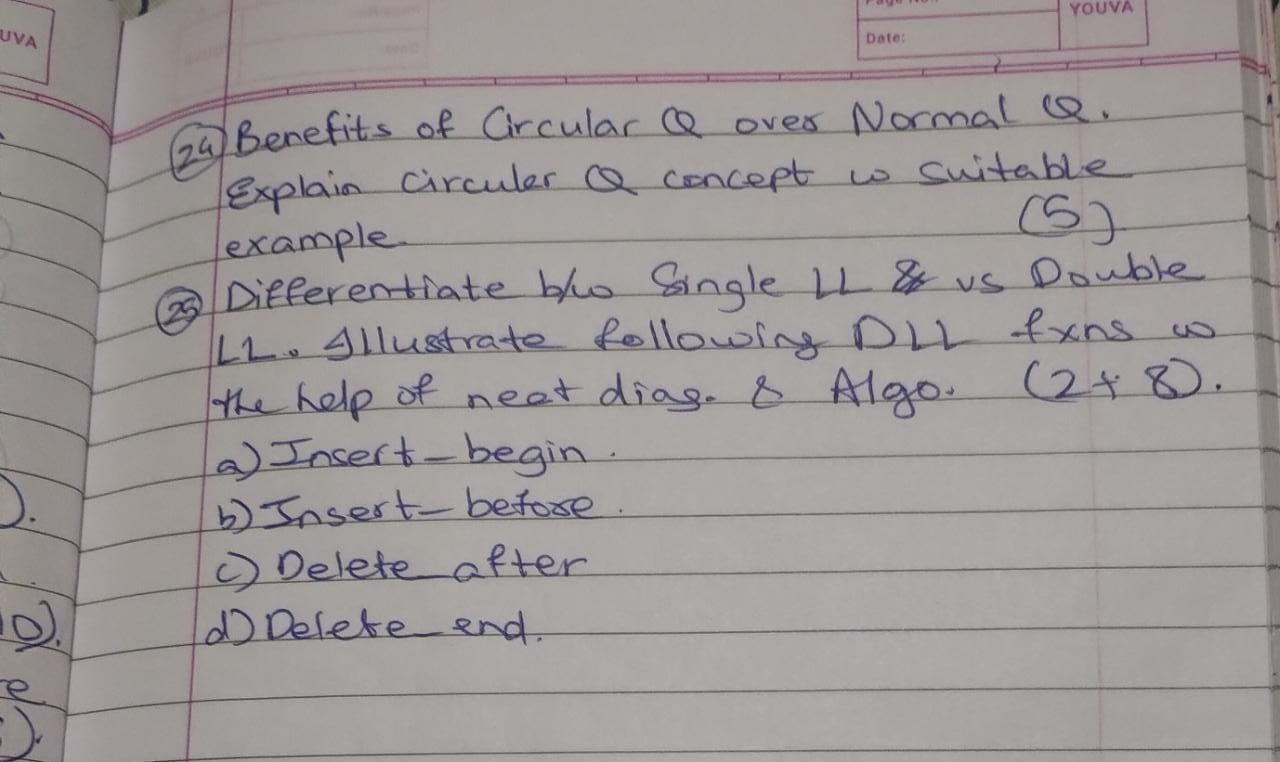 UVA
Page No.
YOUVA
Date:
24) Benefits of Circular Q over Normal Q.
Explain circular Q concept w suitable
example. (5)
25) Differentiate b/w Single LL & vs Double
LL. Illustrate following DLL fxns w
the help of neat diag. & Algo. (2+8).
a) Insert_begin.
b) Insert_before.
c) Delete_after
d) Delete_end.